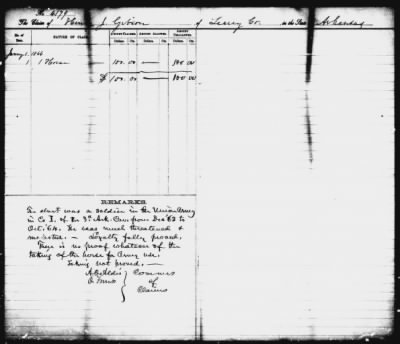 No. 6179
The Claim of J. Gibson of Searcy Co. in the State Arkansas
No. of Item. NATURE OF CLAIM. AMOUNT CLAIMED. AMOUNT ALLOWED. AMOUNT DISALLOWED.
Dollars. Cts. Dollars. Cts. Dollars. Cts.
1 1 Horse 100.00 — 100 00
$ 100.00 — 100 00
REMARKS.
The clmt was a soldier in the Union Army
in Co I. of the 3d Ark. Cav. from Dec 63 to
Oct. 64. He was much threatened &
molested. — Loyalty fully proved.
There is no proof whatever of the
taking of the horse for Army use.
Taking not proved. —
A. O. Aldis Commrs
O. Ferriss of
Claims